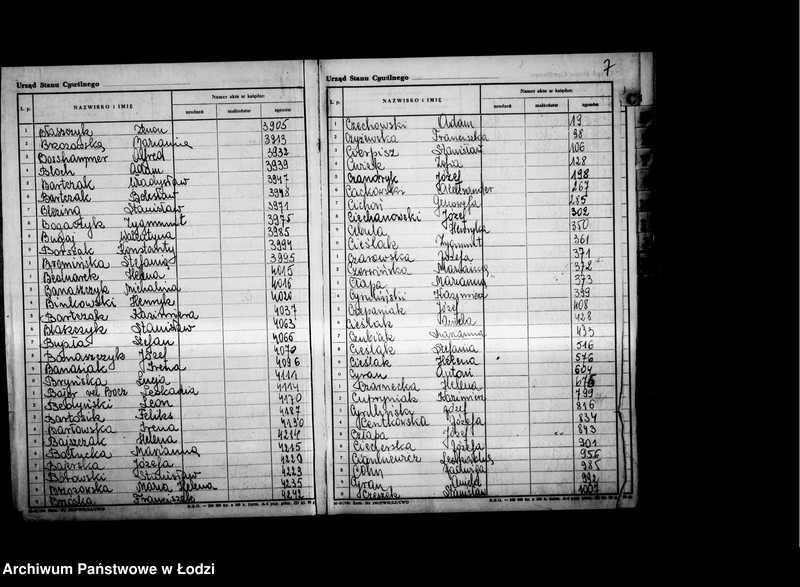 Urząd Stanu Cywilnego
Numer aktu w księdze:
L. p. NAZWISKO i IMIĘ urodzeń małżeństw zgonów
1 Błaszczyk Zenon 3905
2 Brzozowska Marianna 3913
3 Bosshammer Alfred 3932
4 Bloch Adam 3939
5 Bartczak Władysław 3947
6 Bartczak Bolesław 3948
7 Stanisław 3971
8 Bogaczyk Zygmunt 3975
9 Bugaj Walentyna 3985
0 Borszak Konstanty 3994
1 Bromińska Stefania 3995
2 Bednarek Helena 4015
3 Banaszczyk Michalina 4016
4 Binkowski Henryk 4026
5 Bartczak Kazimiera 4037
6 Błaszczyk Stanisław 4063
7 Bupia Stefan 4066
8 Banaszczyk Józef 4070
9 Banasiak Irena 4096
0 Bryńska Łucja 4111
1 Bajer vel Bocz 4114
2 Bedyński Leon 4170
3 Bartosik Feliks 4187
4 Bartowska Irena 4190
5 Bajszczak Helena 4214
6 Bałtycka Marianna 4215
7 Bajerska Józefa 4220
8 Borowski Stanisław 4223
9 Brzozowska Maria Helena 4235
0 Brzóska Franciszek 4242
7
Urząd Stanu Cywilnego
Numer aktu w księdze:
L. p. NAZWISKO i IMIĘ urodzeń małżeństw zgonów
1 Czechowski Adam 19
2 Czyżewska Franciszka 98
3 Cierpisz Stanisław 106
4 Ćwiek Zofia 128
5 Józef 198
6 Cackowski Aleksander 267
7 Cichoń Genowefa 285
8 Ciechanowski Józef 302
9 Cebula Henryka 350
0 Cieślak Zygmunt 361
1 Czarowska Józefa 371
2 Czerwińska Marianna 372
3 Ciapa Marianna 373
4 Cymliński Kazimierz 399
5 Czepaniak Józef 408
6 Cieślak 428
7 Czubiak Marianna 433
8 Cieślak Stefania 516
9 Cieślak Helena 576
0 Cyran Antoni 604
1 Czarnecka Helena 676
2 Cupryniak Kazimierz 799
3 Józef 816
4 Centkowska Józefa 834
5 Czapa Józef 843
6 Ciecierska Józefa 901
7 956
8 Cohn Jadwiga 985
9 Cyran 992
0 Czeszek Stanisław 1007
Archiwum Państwowe w Łodzi